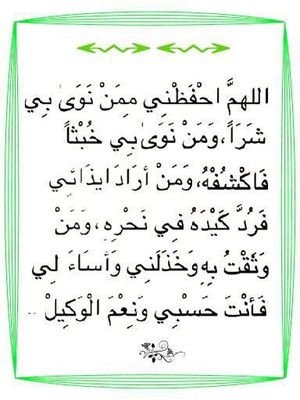 اللهمَّ احْفَظْنِي مِمَنْ نَوَىٰ بِي
شَرَاً،وَمَنْ نَوَىٰ بِي خُبْثاً
فَاكْشُفْهُ،وَمَنْ أرَادَ ايذَائي
فَرُدَّ كَيْدَهُ فِي نَحْرِهِ،وَمَنْ
وَثَقْتُ بِهِ وَخَذَلَني وَأسَاءَ لِي
فَأنْتَ حَسْبِي وَنِعْمَ الْوَكِيلْ ..